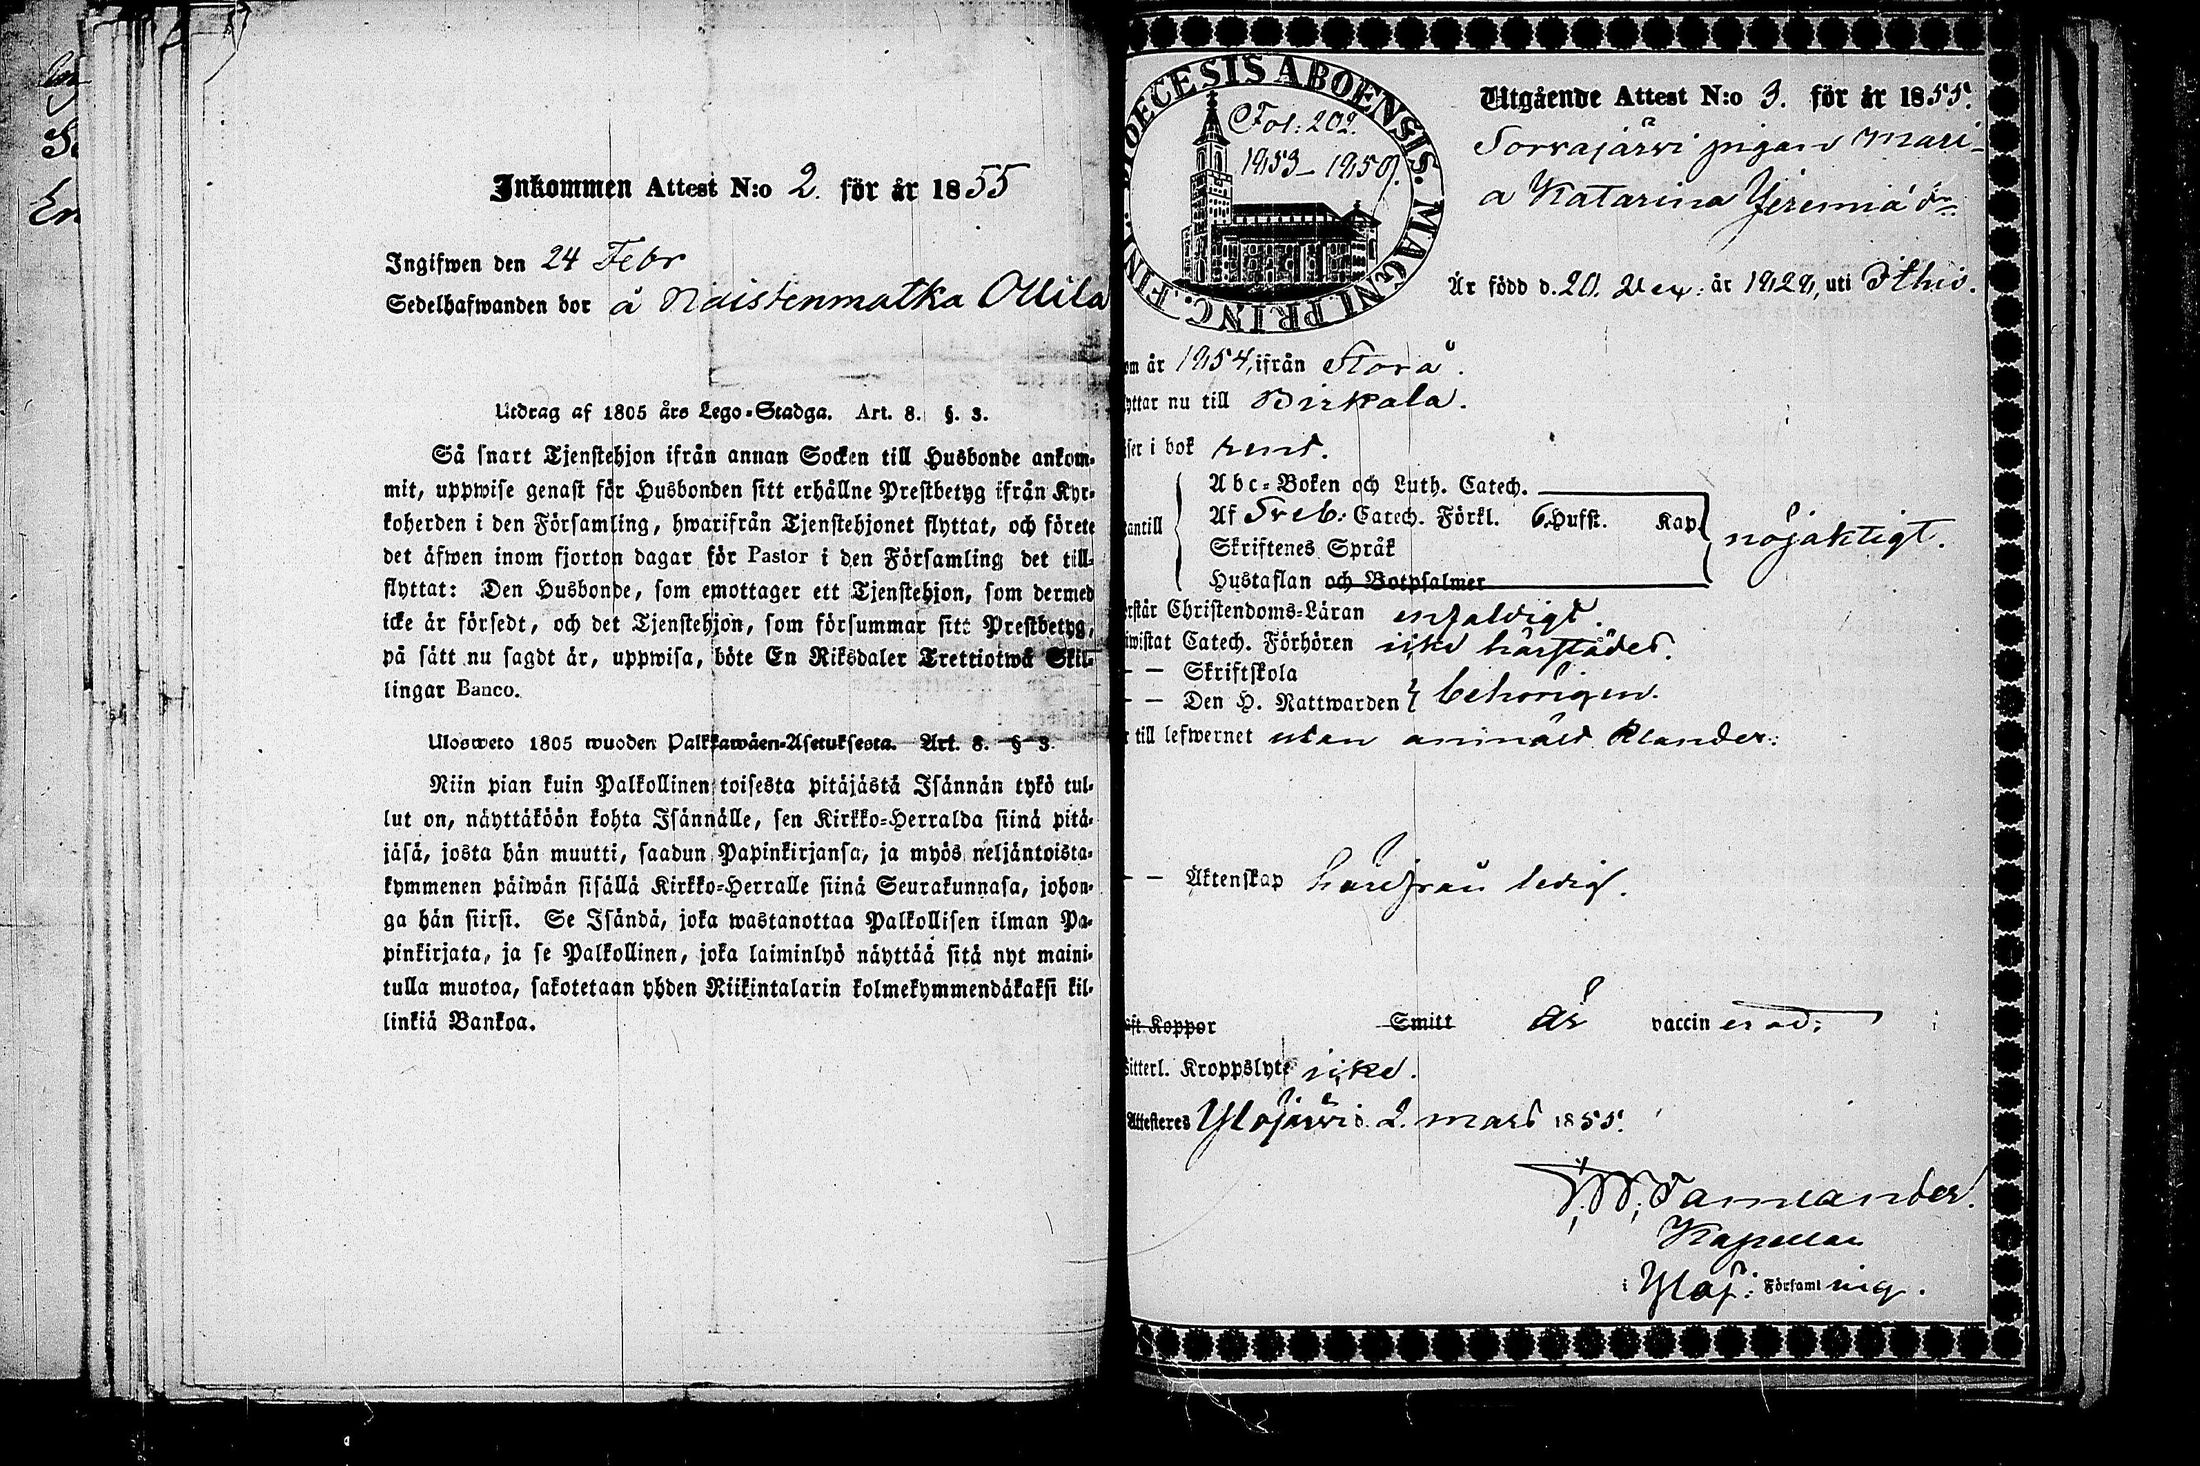 Inkommen Attest N:o 2. för år 1855
Ingifwen den 24 Febr
Sedelhafwanden bor å Naistenmatka Ollila
Utdrag af 1805 års Lego-Stadga. Art. 8. §. 3.
Så snart Tjenstehjon ifrån annan Socken till Husbonde ankom-
mit, uppwise genast för Husbonden sitt erhållne Prestbetyg ifrån Kyr-
koherden i den Församling, hwarifrån Tjenstehjonet flyttat, och förete
det äfwen inom fjorton dagar för Pastor i den Församling det till-
flyttat: Den Husbonde, som emottager ett Tjenstehjon, som dermed
icke är försedt, och det Tjenstehjon, som försummar sitt Prestbetyg,
på sätt nu sagdt är, uppwisa, böte En Riksdaler Trettiotwå Skil-
lingar Banco.
Ulosweto 1805 wuoden Palkkawäen-Asetuksesta. Art. 8. § 3.
Niin pian kuin Palkollinen toisesta pitäjästä Isännän tykö tul-
lut on, näyttäköön kohta Isännälle, sen Kirkko-Herralda siinä pitä-
jäsä, josta hän muutti, saadun Papinkirjansa, ja myös neljäntoista-
kymmenen päiwän sisällä Kirkko-Herralle siinä Seurakunnasa, johon-
ga hän siirsi. Se Isändä, joka wastanottaa Palkollisen ilman Pa-
pinkirjata, ja se Palkollinen, joka laiminlyö näyttää sitä nyt maini-
tulla muotoa, sakotetaan yhden Riikintalarin kolmekymmendäkaksi kil-
linkiä Bankoa.
DIOECESIS ABOENSIS. MAGNI PRINC. FINL.
Fol: 202.
1853-1859.
Utgående Attest N:o 3. för år 1855.
pigan Mari-
a Katarina Jeremiad:r
Är född d. 20. är 1828, uti
om år 1854, ifrån Storå.
yttar nu till Birkala.
äser i bok rent.
Abc-Boken och Luth. Catech.
antill Af Sveb: Catech. Förkl. 6. Hufst. Kap. nöjaktigt.
Skriftenes Språk
Hustaflan och Botpsalmer
erstår Christendoms-Läran enfaldigt.
iwistat Catech. Förhören icke härstädes.
— — Skriftskola
— — Den H. Nattwarden behörigen.
r till lefwernet utan anmäld klander.
— — Äktenskap ledig.
aft Koppor Smitt är vaccinerad.
Witterl. Kroppslyte icke.
Attesteres Ylöjärvi d. 2. mars 1855.
Kapellan
i Ylöj: Församling.